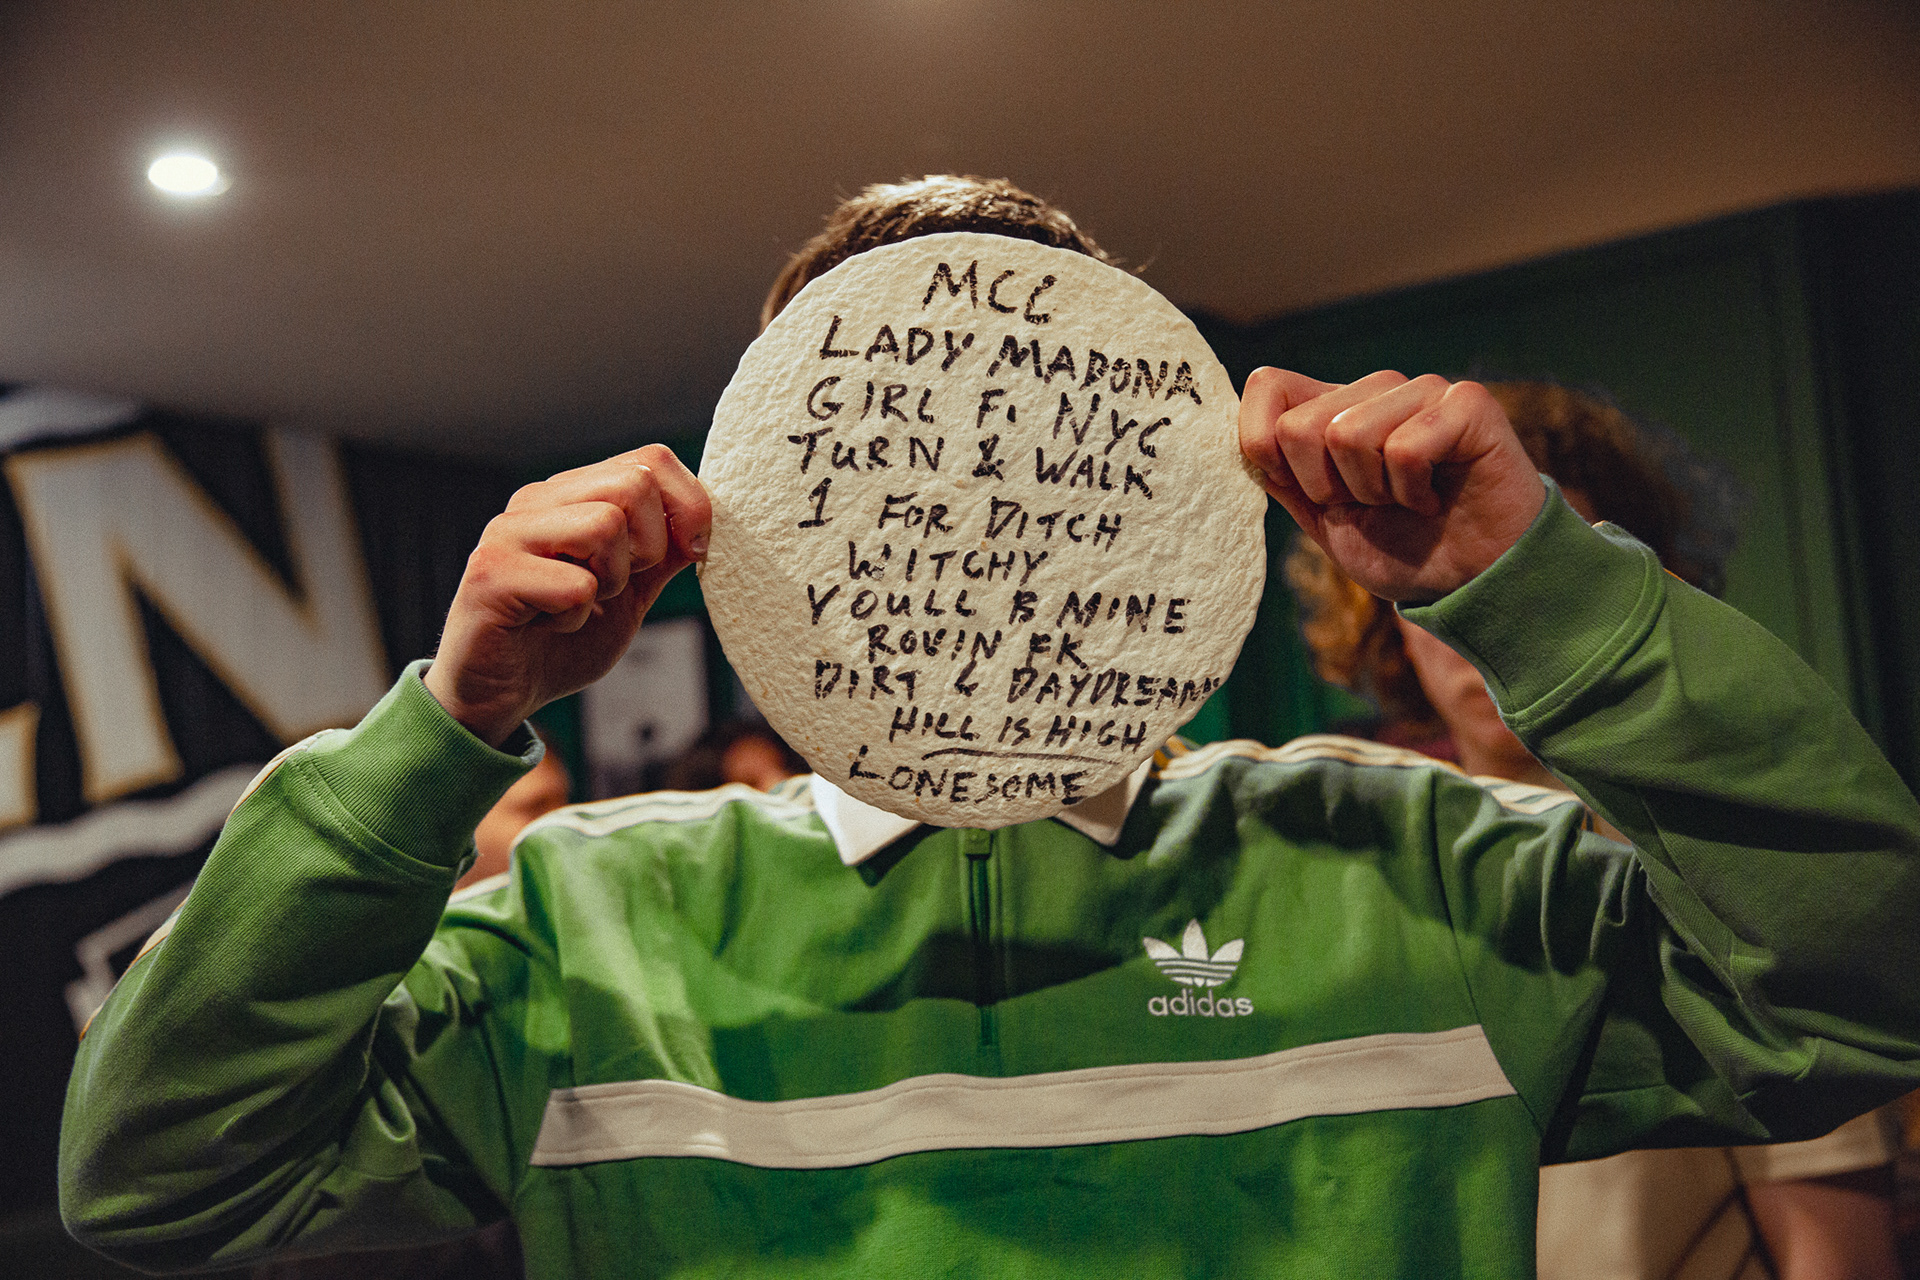 MCC
LADY MADONA
GIRL F. NYC
TURN & WALK
1 FOR DITCH
WITCHY
YOULL B MINE
ROVIN FK
DIRT & DAYDREAMS
HILL IS HIGH
LONESOME
adidas
N